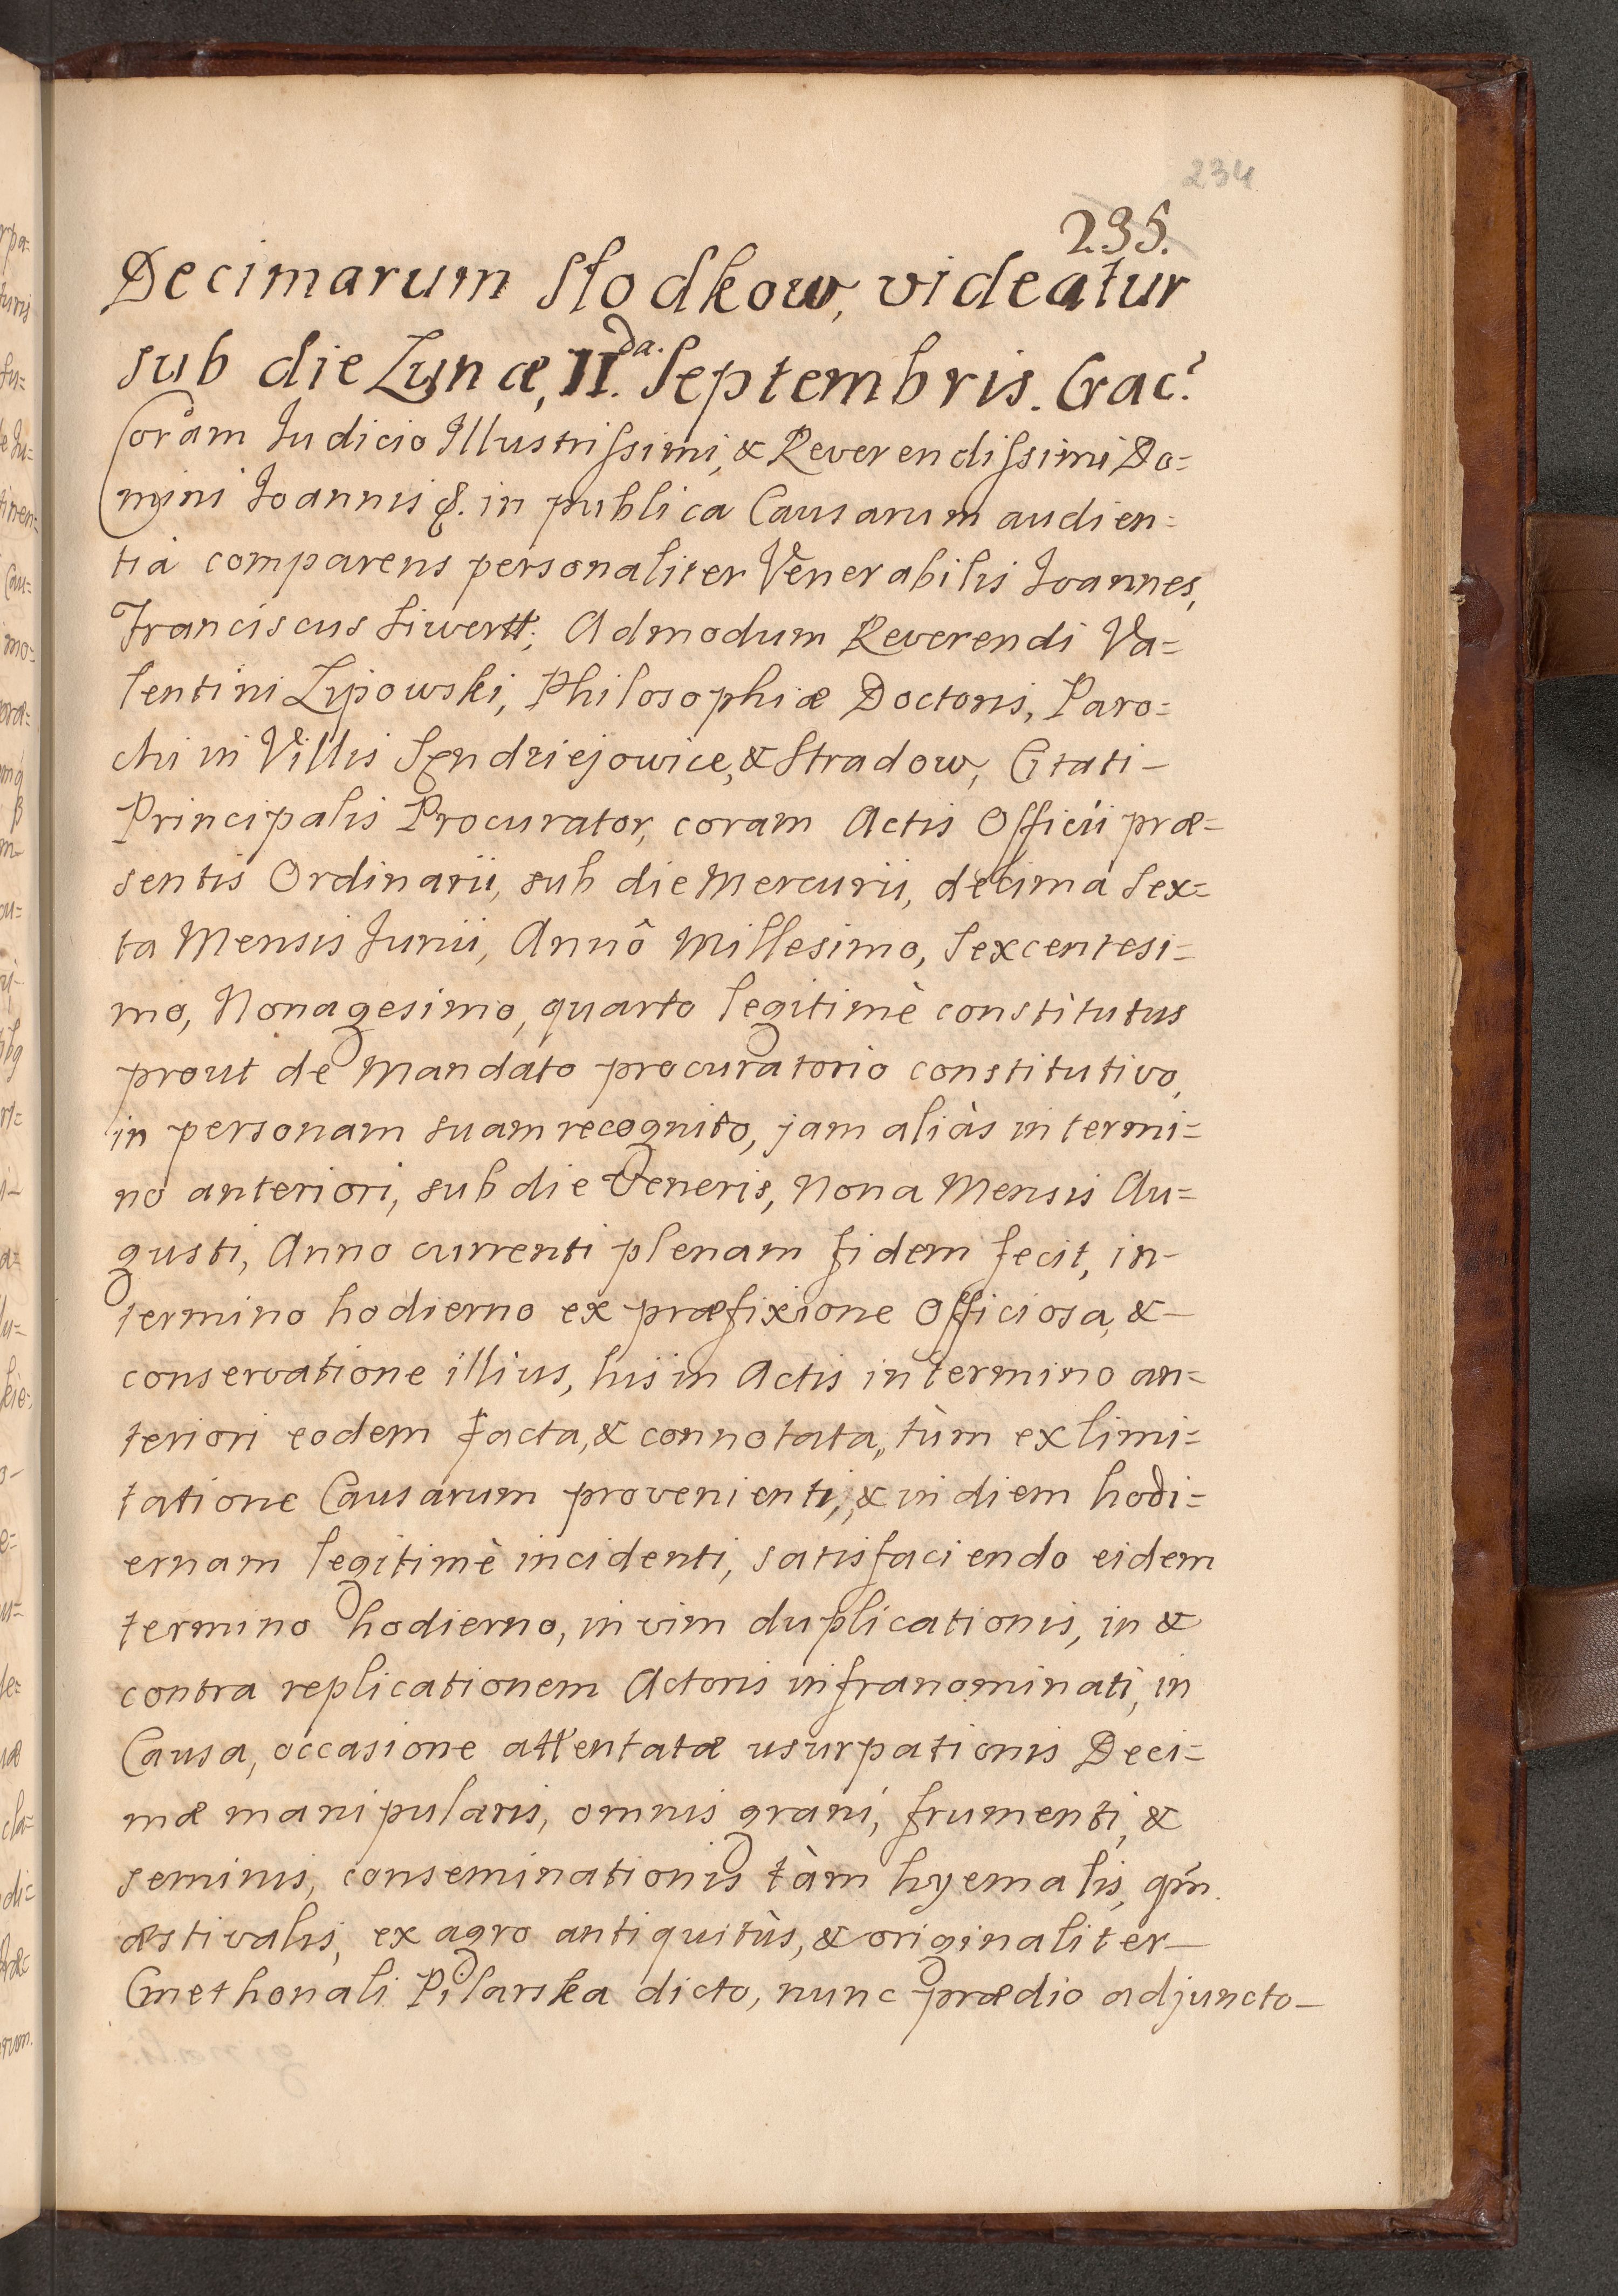 234
235.
Decimarum Słodkow, videatur
sub die Lunæ, II.da. Septembris. Crac?
Coram Judicio Illustrissimi, & Reverendissimi Do=
mini Joannis &. in publica Causarum audien=
tia comparens personaliter Venerabilis Joannes,
Franciscus Siwertt; Admodum Reverendi Va=
lentini Lipowski, Philosophiæ Doctoris, Paro=
chi in Villis Sendziejowice, & Stradow, Citati-
Principalis Procurator, coram Actis Officii præ=
sentis Ordinarii, sub die Mercurii, decima Sex=
ta Mensis Junii, Annô Millesimo, Sexcentesi=
mo, Nonagesimo, quarto legitimè constitutus
prout de Mandato procuratorio constitutivo,
in personam suam recognito, jam aliàs in termi=
no anteriori, sub die Veneris, Nona Mensis Au=
gusti, Anno currenti plenam fidem fecit, in-
termino hodierno ex præfixione Officiosa, &-
conservatione illius, his in Actis in termino an=
teriori eodem facta, & connotata, tùm ex limi=
tatione Causarum provenienti, & in diem hodi=
ernam legitimè incidenti, satisfaciendo eidem
termino hodierno, in vim duplicationis, in &
contra replicationem Actoris infranominati, in
Causa, occasione attentatæ usurpationis Deci=
mæ manipularis, omnis grani, frumenti, &
seminis, conseminationis tàm hyemalis, qm̃.
æstivalis, ex agro antiquitùs, & originaliter-
Cmethonali Pilarska dicto, nunc prædio adjuncto-